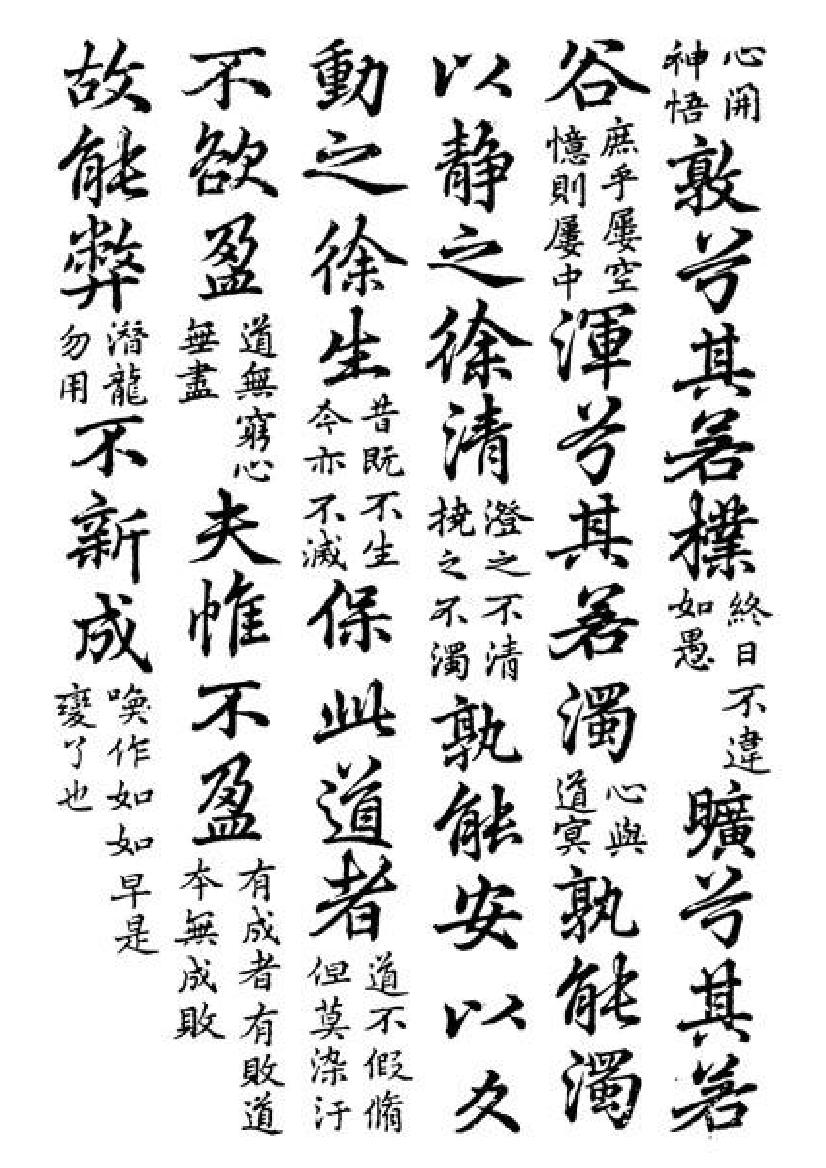 心開神悟敦兮其若樸終日不違如愚曠兮其若
谷庶乎屢空憶則屢中渾兮其若濁心與道冥孰能濁
以静之徐清澄之不清撓之不濁孰能安以久
動之徐生昔既不生今亦不滅保此道者道不假脩但莫染汙
不欲盈道無窮心無盡夫惟不盈有成者有敗道本無成敗
故能弊潛龍勿用不新成喚作如如早是變了也